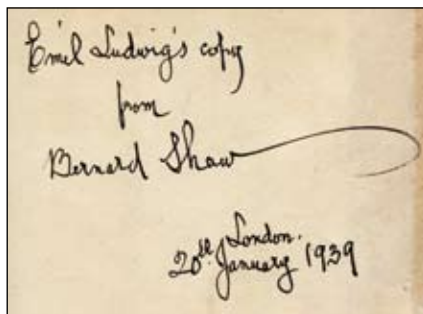 Emil Ludwig's copy
from
Bernard Shaw
London.
20th January 1939